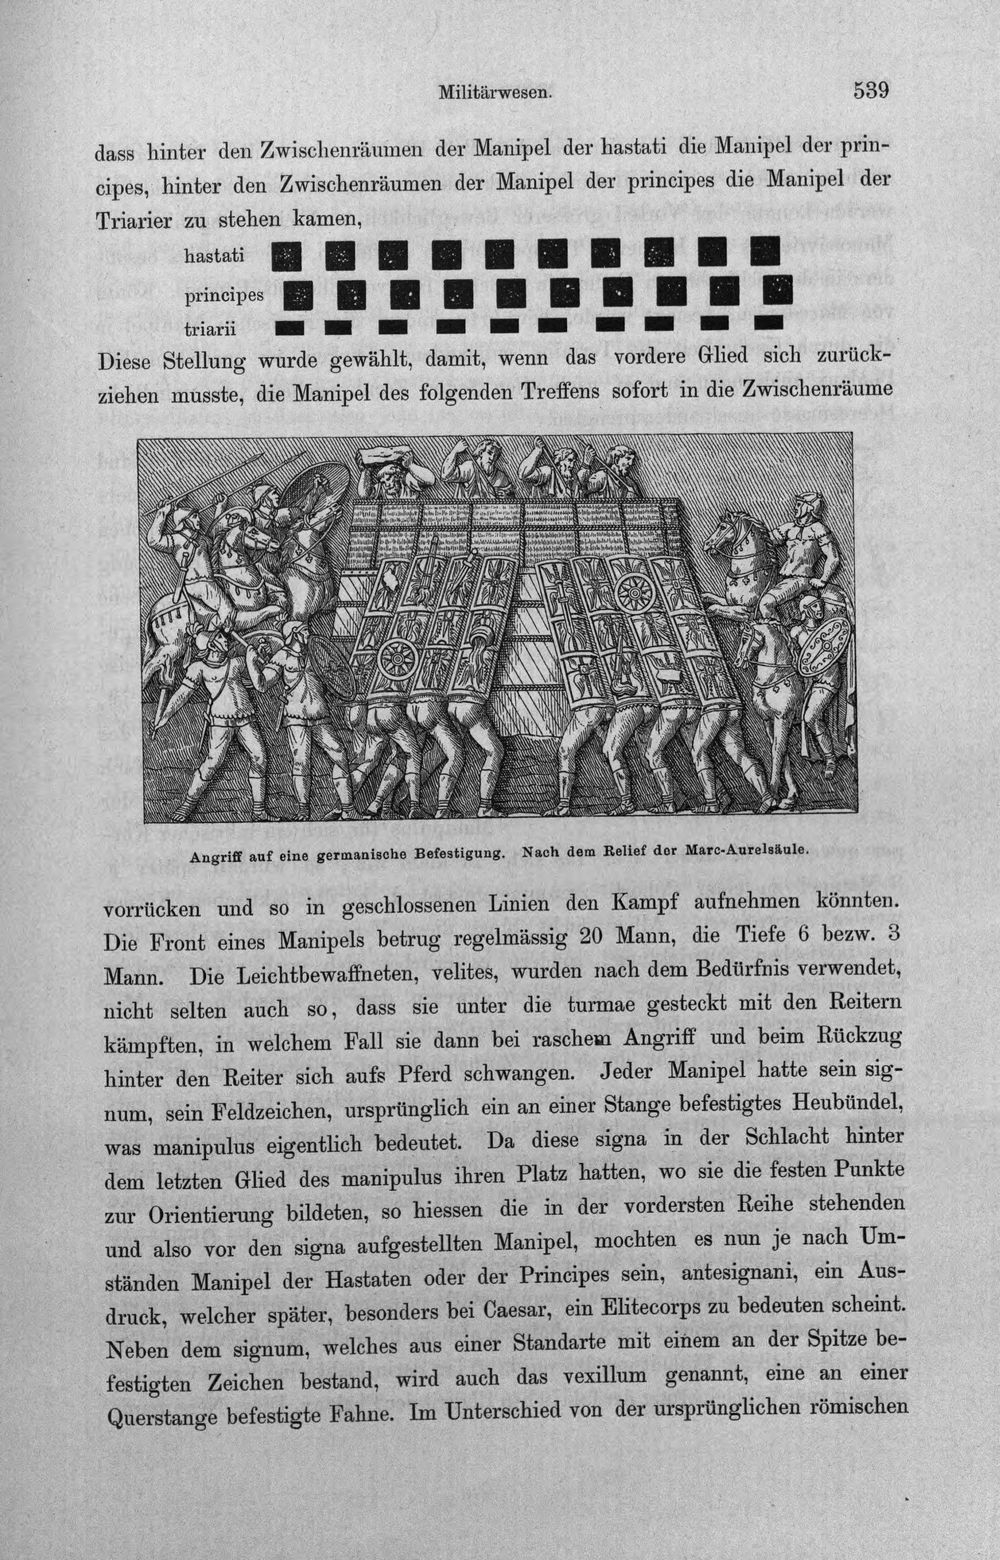 Militärwesen. 539
dass hinter den Zwischenräumen der Manipel der hastati die Manipel der prin-
cipes, hinter den Zwischenräumen der Manipel der principes die Manipel der
Triarier zu stehen kamen,
hastati
principes
triarii
Diese Stellung wurde gewählt, damit, wenn das vordere Glied sich zurück-
ziehen musste, die Manipel des folgenden Treffens sofort in die Zwischenräume
Angriff auf eine germanische Befestigung. Nach dem Relief der Marc-Aurelsäule.
vorrücken und so in geschlossenen Linien den Kampf aufnehmen könnten.
Die Front eines Manipels betrug regelmässig 20 Mann, die Tiefe 6 bezw. 3
Mann. Die Leichtbewaffneten, velites, wurden nach dem Bedürfnis verwendet,
nicht selten auch so, dass sie unter die turmae gesteckt mit den Reitern
kämpften, in welchem Fall sie dann bei raschem Angriff und beim Rückzug
hinter den Reiter sich aufs Pferd schwangen. Jeder Manipel hatte sein sig-
num, sein Feldzeichen, ursprünglich ein an einer Stange befestigtes Heubündel,
was manipulus eigentlich bedeutet. Da diese signa in der Schlacht hinter
dem letzten Glied des manipulus ihren Platz hatten, wo sie die festen Punkte
zur Orientierung bildeten, so hiessen die in der vordersten Reihe stehenden
und also vor den signa aufgestellten Manipel, mochten es nun je nach Um-
ständen Manipel der Hastaten oder der Principes sein, antesignani, ein Aus-
druck, welcher später, besonders bei Caesar, ein Elitecorps zu bedeuten scheint.
Neben dem signum, welches aus einer Standarte mit einem an der Spitze be-
festigten Zeichen bestand, wird auch das vexillum genannt, eine an einer
Querstange befestigte Fahne. Im Unterschied von der ursprünglichen römischen